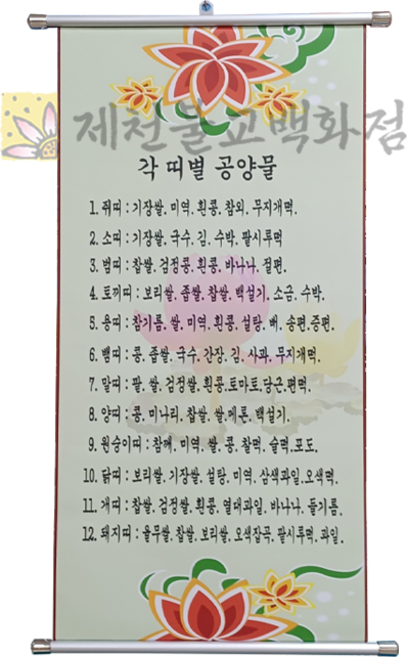 제천불교백화점
각 띠별 공양물
1. 쥐띠 : 기장쌀. 미역. 흰콩. 참외. 무지개떡.
2. 소띠 : 기장쌀. 국수. 김. 수박. 팥시루떡
3. 범띠 : 찹쌀. 검정콩. 흰콩. 바나나. 절편.
4. 토끼띠 : 보리쌀. 좁쌀. 찹쌀. 백설기. 소금. 수박.
5. 용띠 : 참기름. 쌀. 미역. 흰콩. 설탕. 배. 송편.증편.
6. 뱀띠 : 콩. 좁쌀. 국수. 간장. 김. 사과. 무지개떡.
7. 말띠 : 팥. 쌀. 검정쌀. 흰콩.토마토.당근.편떡.
8. 양띠 : 콩. 미나리. 찹쌀. 쌀.메론. 백설기.
9. 원숭이띠 : 참깨. 미역. 쌀. 콩. 찰떡. 술떡.포도.
10. 닭띠 : 보리쌀. 기장쌀. 설탕. 미역. 삼색과일.오색떡.
11. 개띠 : 찹쌀. 검정쌀. 흰콩. 열대과일. 바나나. 들기름.
12. 돼지띠 : 율무쌀. 찹쌀. 보리쌀. 오색잡곡. 팥시루떡. 과일.